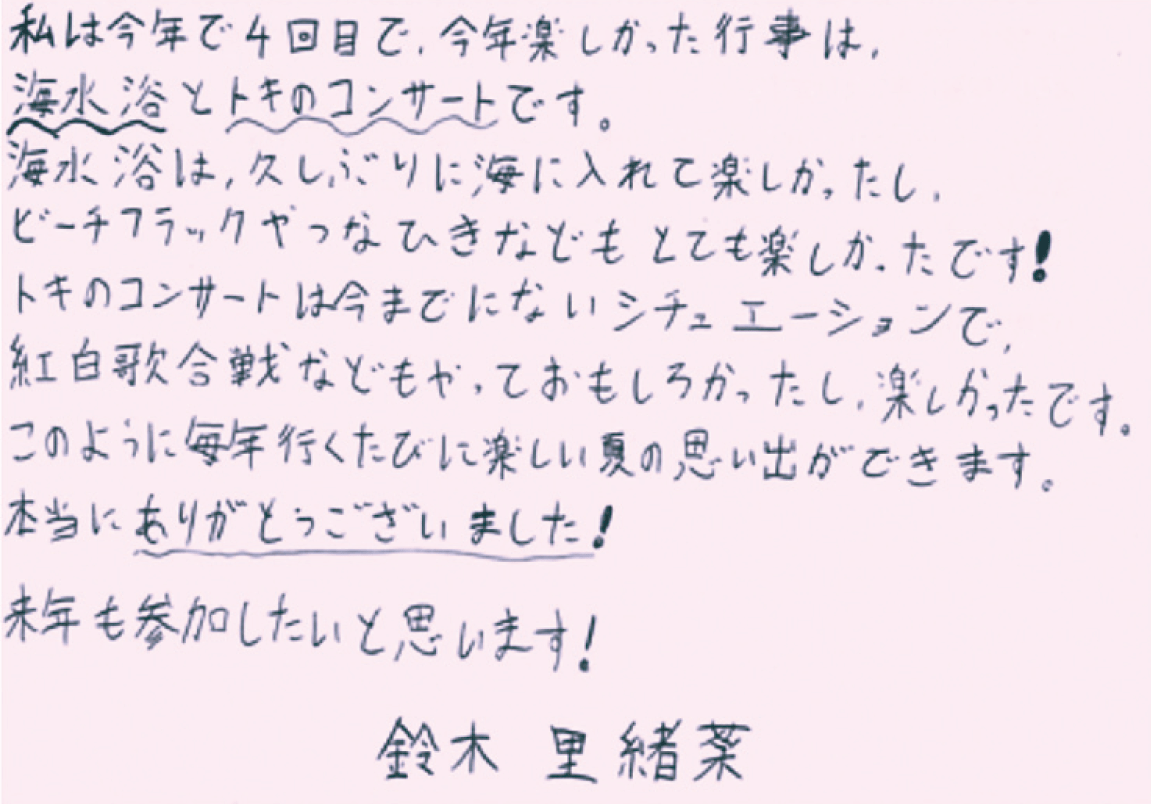 私は今年で4回目で、今年楽しかった行事は、
海水浴とトキのコンサートです。
海水浴は、久しぶりに海に入れて楽しかったし、
ビーチフラックやつなひきなどもとても楽しかったです!
トキのコンサートは今までにないシチュエーションで、
紅白歌合戦などもやっておもしろかったし、楽しかったです。
このように毎年行くたびに楽しい夏の思い出ができます。
本当にありがとうございました!
来年も参加したいと思います!
鈴木 里緒菜